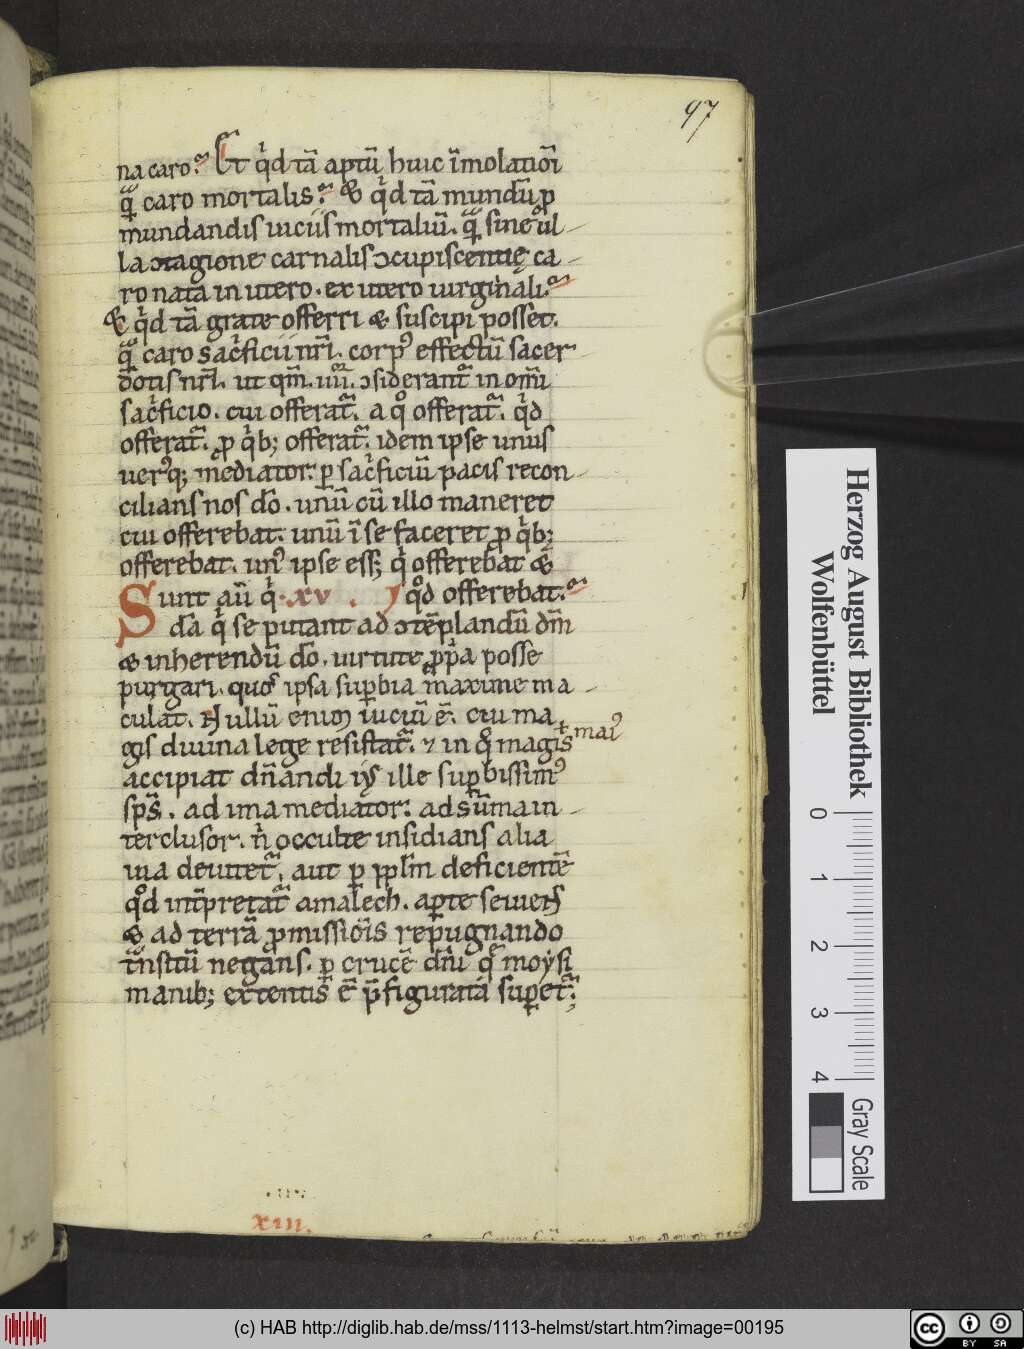 97
na caro. Et q̇d tā aptū huic īmolatiōi
q̄ caro mortalis. & q̇d tā mundū ꝓ
mundandis uiciis mortaliū. q̄ sine ul
la ↄtagione carnalis ↄcupiscentię ca
ro nata in utero. ex utero uirginali.
& q̇d tā grate offerri & suscipi posset.
q̄ caro sac̄ficii nr̄i. corpꝰ effectū sacer
dotis nr̄i. ut qm̄. iiii. ↄsiderant̄ in om̄i
sac̄ficio. cui offerat̄. a qͦ offerat̄. q̇d
offerat̄. ꝓ q̇b; offerat̄. idem ipse unus
uerꝰq; mediator. ꝑ sac̄ficiū pacis recon
cilians nos dō. unū cū illo maneret
cui offerebat. unū ī se faceret ꝓ q̇b;
offerebat. unꝰ ipse ess; q̇ offerebat &
Sunt aū q̇. xv. qͦd offerebat.
da q̇ se putant ad ↄtēplandū dm̄
& inherendū dō. uirtute ꝓpͥa posse
purgari. quos ipsa suꝑbia maxime ma
culat. Nullū enim uiciū ē. cui ma
gis diuina lege resistat̄. ⁊ in qͦ magis
maiꝰ
accipiat dn̄andi iꝰ ille suꝑbissimꝰ
sps̄. ad ima mediator. ad sūma in
terclusor. n̄ occulte insidians alia
uia deuitet̄. aut ꝑ ppl̄m deficientē
qͦd int̄pretat̄ amalech. aꝑte seuiens
& ad terrā ꝓmissiōis repugnando
t̄nsitū negans. ꝑ crucē dn̄i q̄ moẏsi
manib; extentis ē p̄figurata suꝑet̄.
xiii.
Herzog August Bibliothek
Wolfenbüttel
0 1 2 3 4
Gray Scale
(c) HAB http://diglib.hab.de/mss/1113-helmst/start.htm?image=00195
cc BY SA